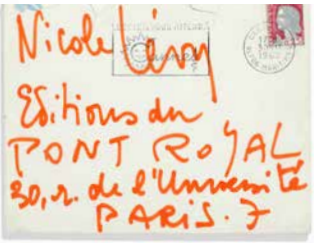 Nicole Lévy
Editions du
PONT ROYAL
30, r. de l'Université
PARIS. 7